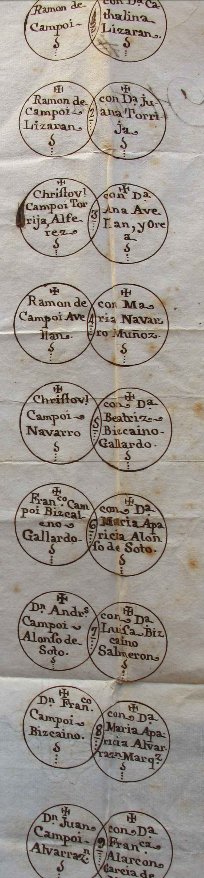 Ramon de
Campoi
con Dª Ca
thalina
Lizaran.
Ramon de
Campoi
Lizaran
2
con Dª Ju
ana Torri
ja
Christovl
Campoi Tor
rija Alfe
rez
3
con Dª
Ana Ave
llan, y Ore
a
Ramon de
Campoi Ave
llan.
4
con Ma
ria Navar
ro Muñoz.
Christovl
Campoi
Navarro
5
con Dª
Beatriz
Bizcaino
Gallardo.
Franco. Cam
poi Bizcai
no
Gallardo
6
con Dª
Maria Apa
ricia Alon
so de Soto.
Dn Andrs
Campoi
Alonso de
Soto.
7
con Dª
Luisa Biz
caino
Salmeron
Dn Franco
Campoi
Bizcaino.
8
con Dª
Maria Apa
ricia Alvar
Marqz
Dn Juan
Campoi
Alvarrazn
9
con Dª
Franca
Alarcon
Garcia de